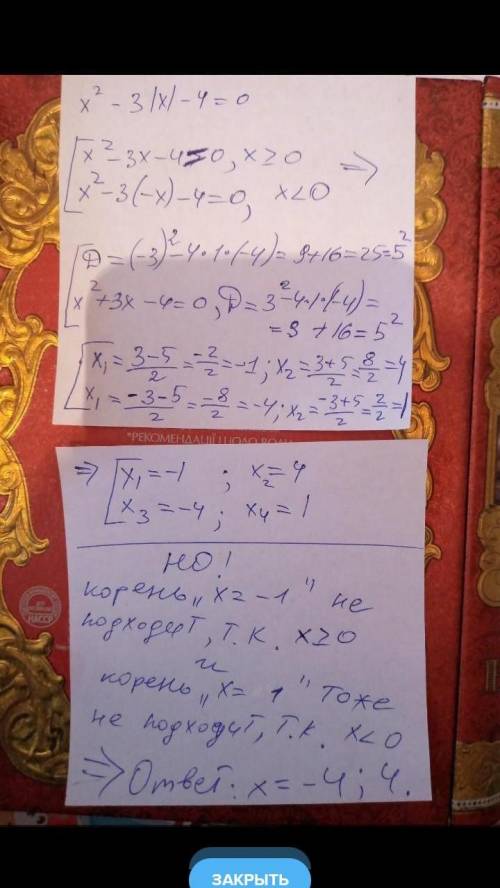 x² - 3|x| - 4 = 0
x² - 3x - 4 = 0, x ≥ 0 =>
x² - 3(-x) - 4 = 0, x < 0
Д = (-3)² - 4·1·(-4) = 9 + 16 = 25 = 5²
x² + 3x - 4 = 0, Д = 3² - 4·1·(-4) =
= 9 + 16 = 5²
x₁ = (3-5)/2 = -2/2 = -1; x₂ = (3+5)/2 = 8/2 = 4
x₁ = (-3-5)/2 = -8/2 = -4; x₂ = (-3+5)/2 = 2/2 = 1
*РЕКОМЕНДАЦІЇ ЩОДО
=> x₁ = -1 ; x₂ = 4
x₃ = -4 ; x₄ = 1
НО!
корень „x = -1" не
подходит, т.к. x ≥ 0
и
корень „x = 1" тоже
не подходит, т.к. x < 0
=> Ответ: x = -4; 4.
ЗАКРЫТЬ